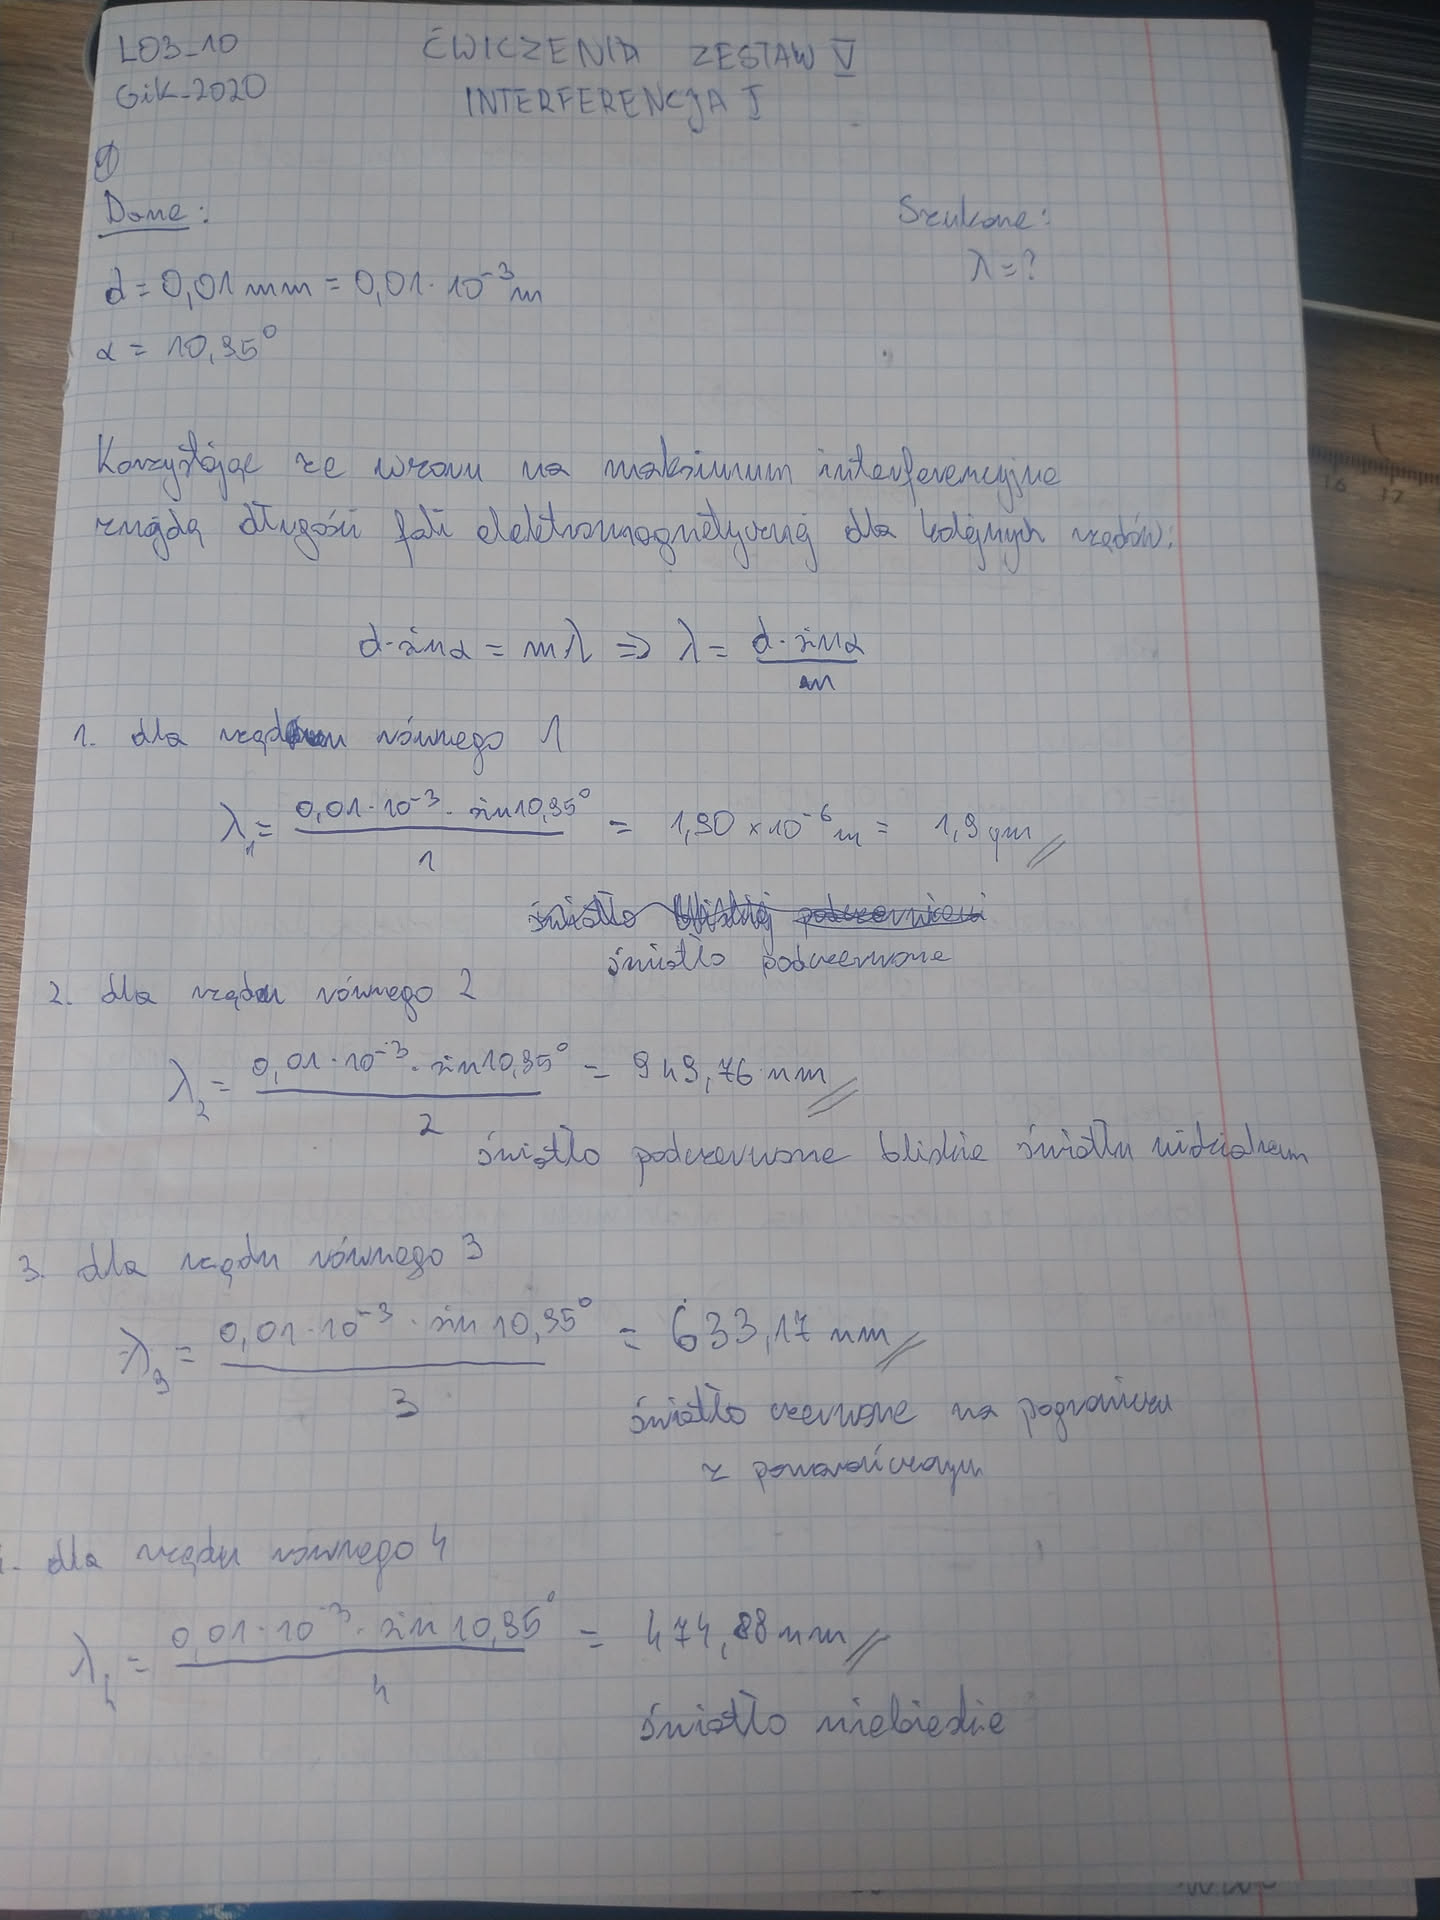 L03_10
GiK_2020
ĆWICZENIA ZESTAW V
INTERFERENCJA I
1
Dane:
Szukane:
d = 0,01 mm = 0,01 · 10⁻³ m
λ = ?
α = 10,95°
Korzystając ze wzoru na maksimum interferencyjne
znajdę długości fali elektromagnetycznej dla kolejnych rzędów:
d · sinα = mλ => λ = d · sinα / m
1. dla rzędu równego 1
λ₁ = 0,01 · 10⁻³ · sin 10,95° / 1 = 1,90 × 10⁻⁶ m = 1,9 μm
światło bliskiej podczerwieni
światło podczerwone
2. dla rzędu równego 2
λ₂ = 0,01 · 10⁻³ · sin 10,95° / 2 = 949,76 nm
światło podczerwone bliskie światłu widzialnem
3. dla rzędu równego 3
λ₃ = 0,01 · 10⁻³ · sin 10,95° / 3 = 633,17 nm
światło czerwone na pograniczu
z pomarańczowym
. dla rzędu równego 4
λ₄ = 0,01 · 10⁻³ · sin 10,95° / 4 = 474,88 nm
światło niebieskie
16 17